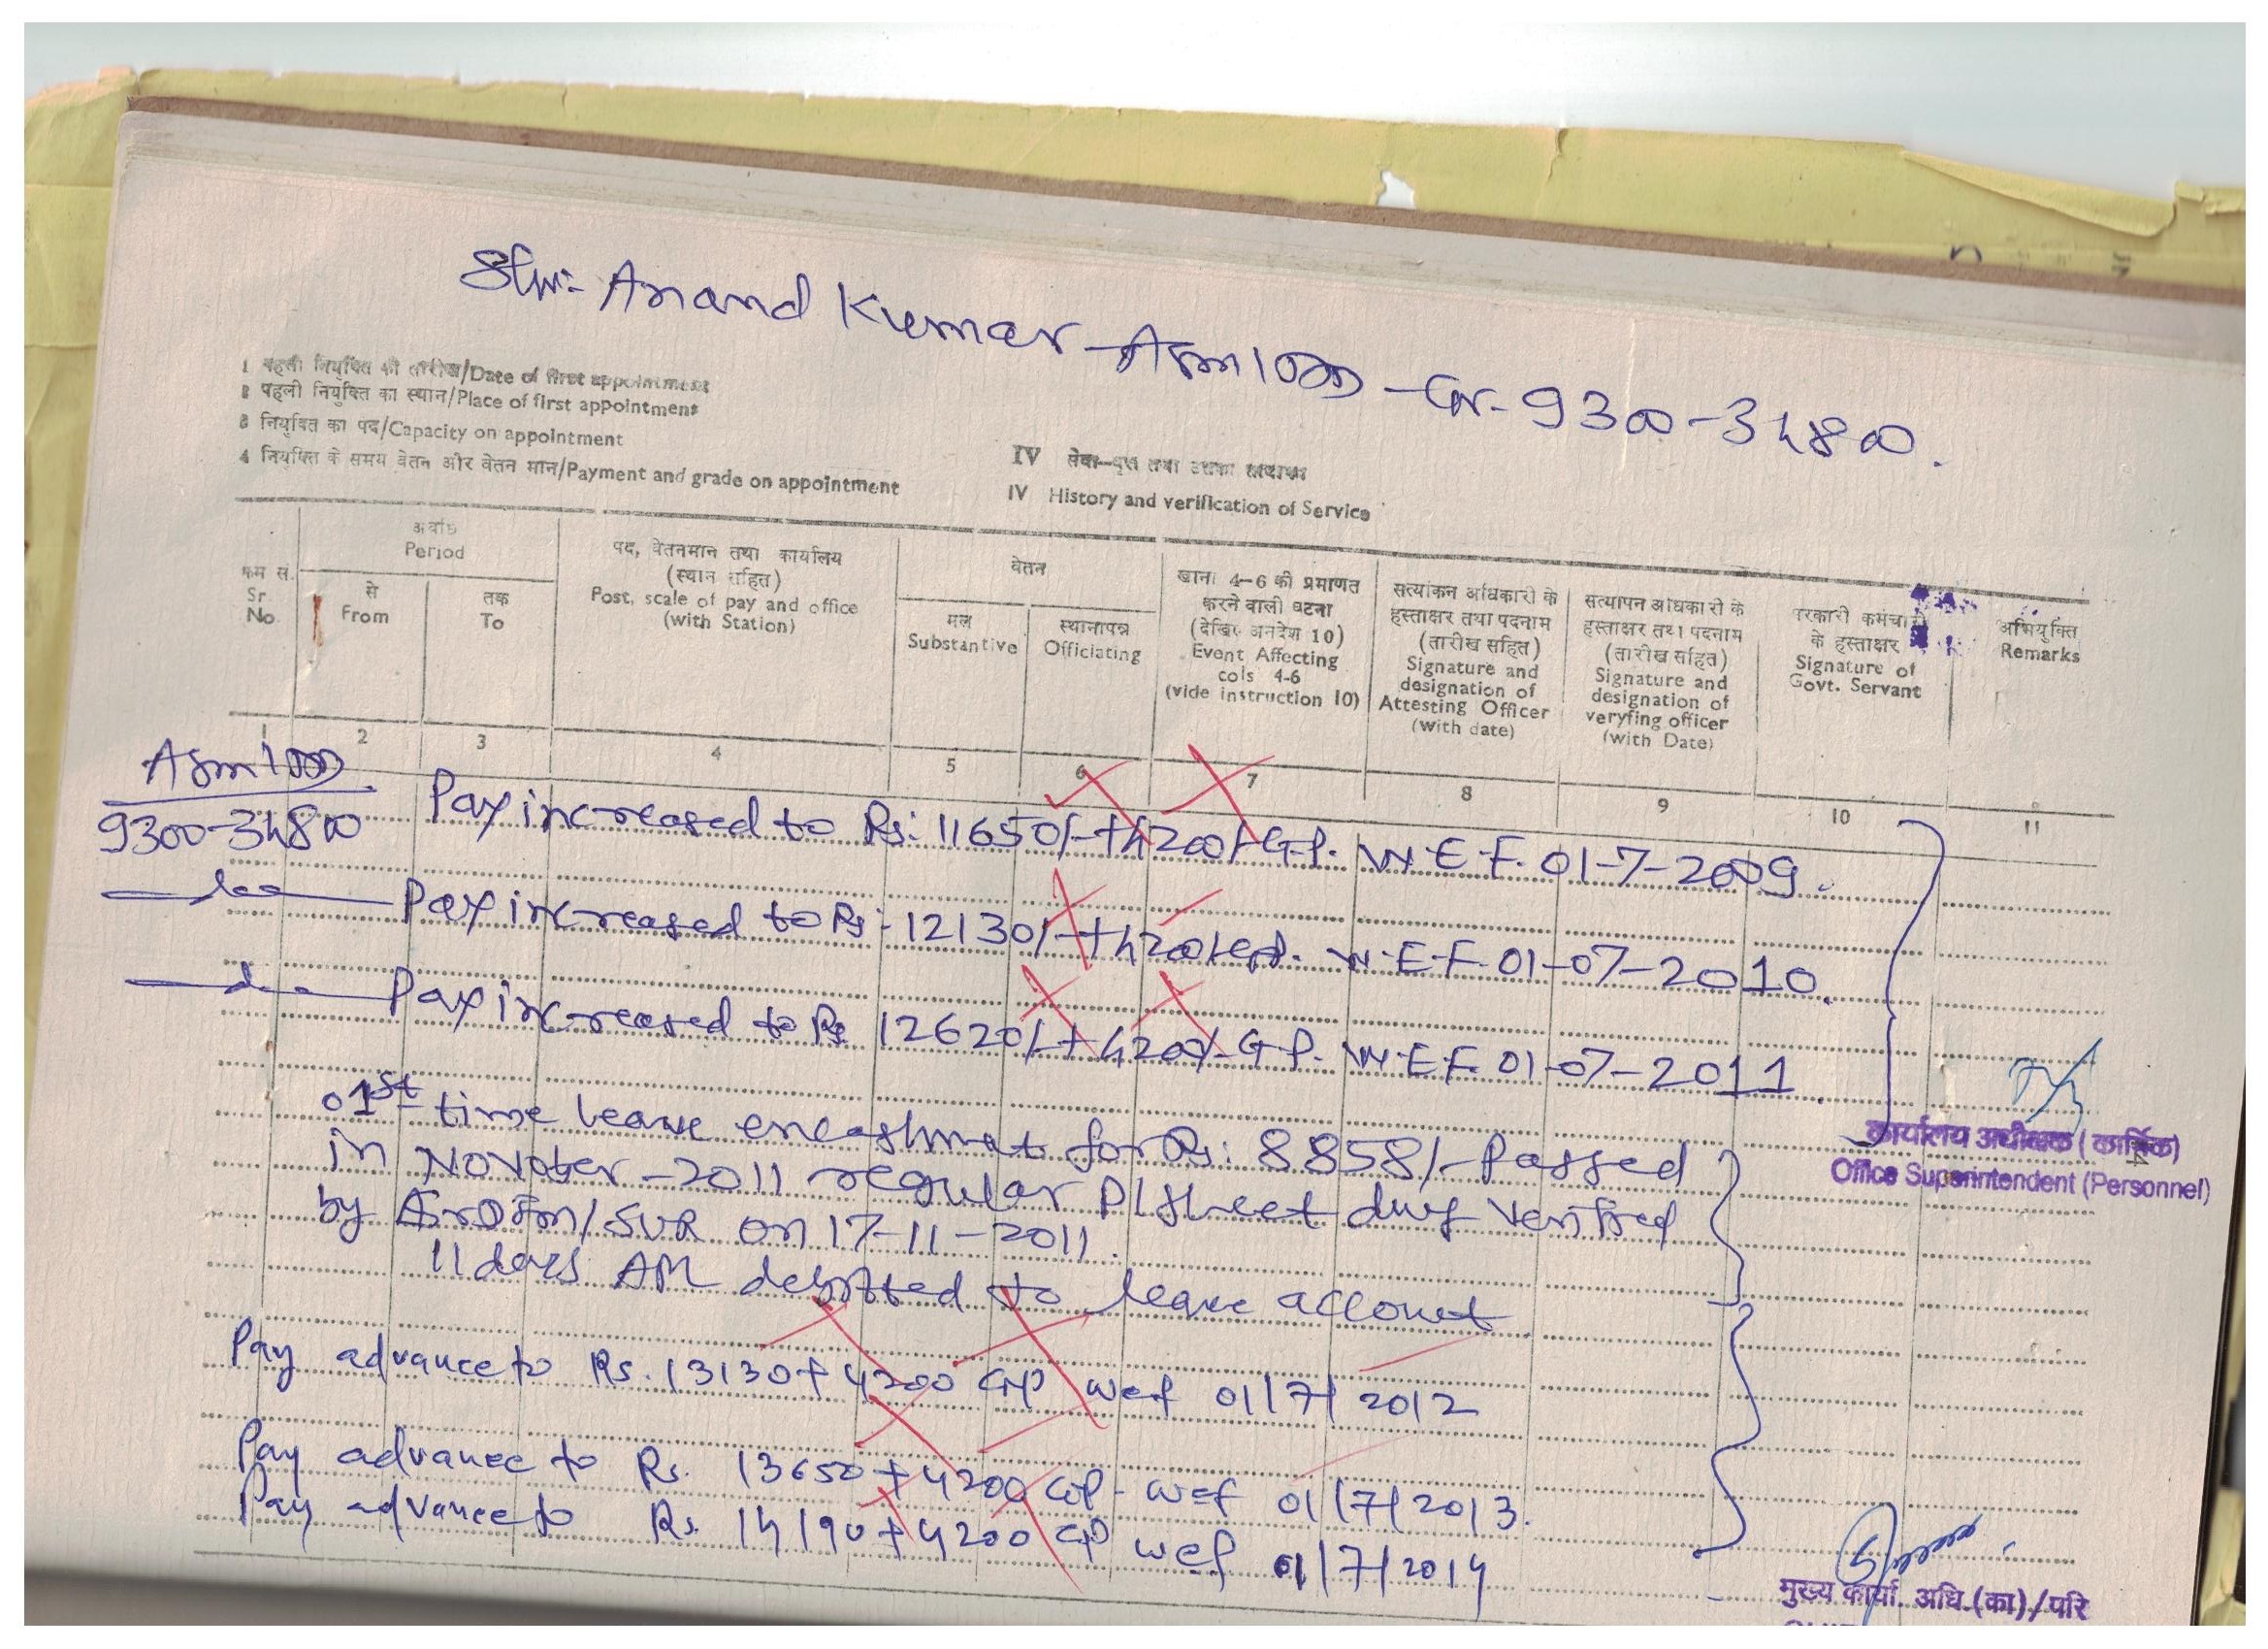 Shri- Anand Kumar - ASM - Gr- 9300-34800.
1 पहली नियुक्ति की तारीख/Date of first appointment
2 पहली नियुक्ति का स्थान/Place of first appointment
3 नियुक्ति का पद/Capacity on appointment
4 नियुक्ति के समय वेतन और वेतन मान/Payment and grade on appointment
IV
IV History and verification of Service
क्रम सं.
Sr
No.
अवधि
Period
से
From
तक
To
पद, वेतनमान तथा कार्यालय
(स्थान सहित)
Post, scale of pay and office
(with Station)
वेतन
मूल
Substantive
स्थानापन्न
Officiating
खाना 4-6 को प्रमाणत
करने वाली घटना
(देखिए अनदेश 10)
Event Affecting
cols 4-6
(vide instruction 10)
सत्यांकन अधिकारी के
हस्ताक्षर तथा पदनाम
(तारीख सहित)
Signature and
designation of
Attesting Officer
(with date)
सत्यापन अधिकारी के
हस्ताक्षर तथा पदनाम
(तारीख सहित)
Signature and
designation of
veryfing officer
(with Date)
सरकारी कर्मचारी
के हस्ताक्षर
Signature of
Govt. Servant
अभियुक्ति
Remarks
1 2 3 4 5 6 7 8 9 10 11
ASM
9300-34800 Pay increased to Rs: 11650/-+4200/-G.P. W.E.F. 01-7-2009.
Pay increased to Rs:- 12130/-+4200/- W.E.F. 01-07-2010.
Pay increased to Rs 12620/-+4200/-G.P. W.E.F. 01-07-2011.
01st time leave encashmat for Rs: 8858/- Passed
in November-2011 regular P/Sheet verified
by on 17-11-2011.
11 days debitted to leave account
Pay advance to Rs. 13130+4200 GP wef 01/7/2012
Pay advance to Rs. 13650+4200 GP- wef 01/7/2013.
Pay advance to Rs. 14190+4200 GP wef 01/7/2014
कार्यालय अधीक्षक (कार्मिक)
Office Superintendent (Personnel)
मुख्य कार्या. अधि.(का)/परि